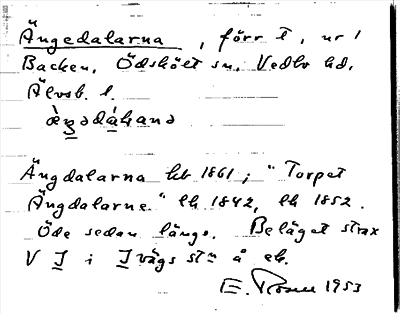 Ängedalarna, förr t, ur 1
Backen, Ödskölt sn, Vedbo hd,
Älvsb. l.
Ängdalarna hb 1861; "Torpet
Ängdalarne" lh 1842, lh 1852.
Öde sedan länge. Beläget strax
V I i Ivägs stn å ek.
E. Rosell 1953